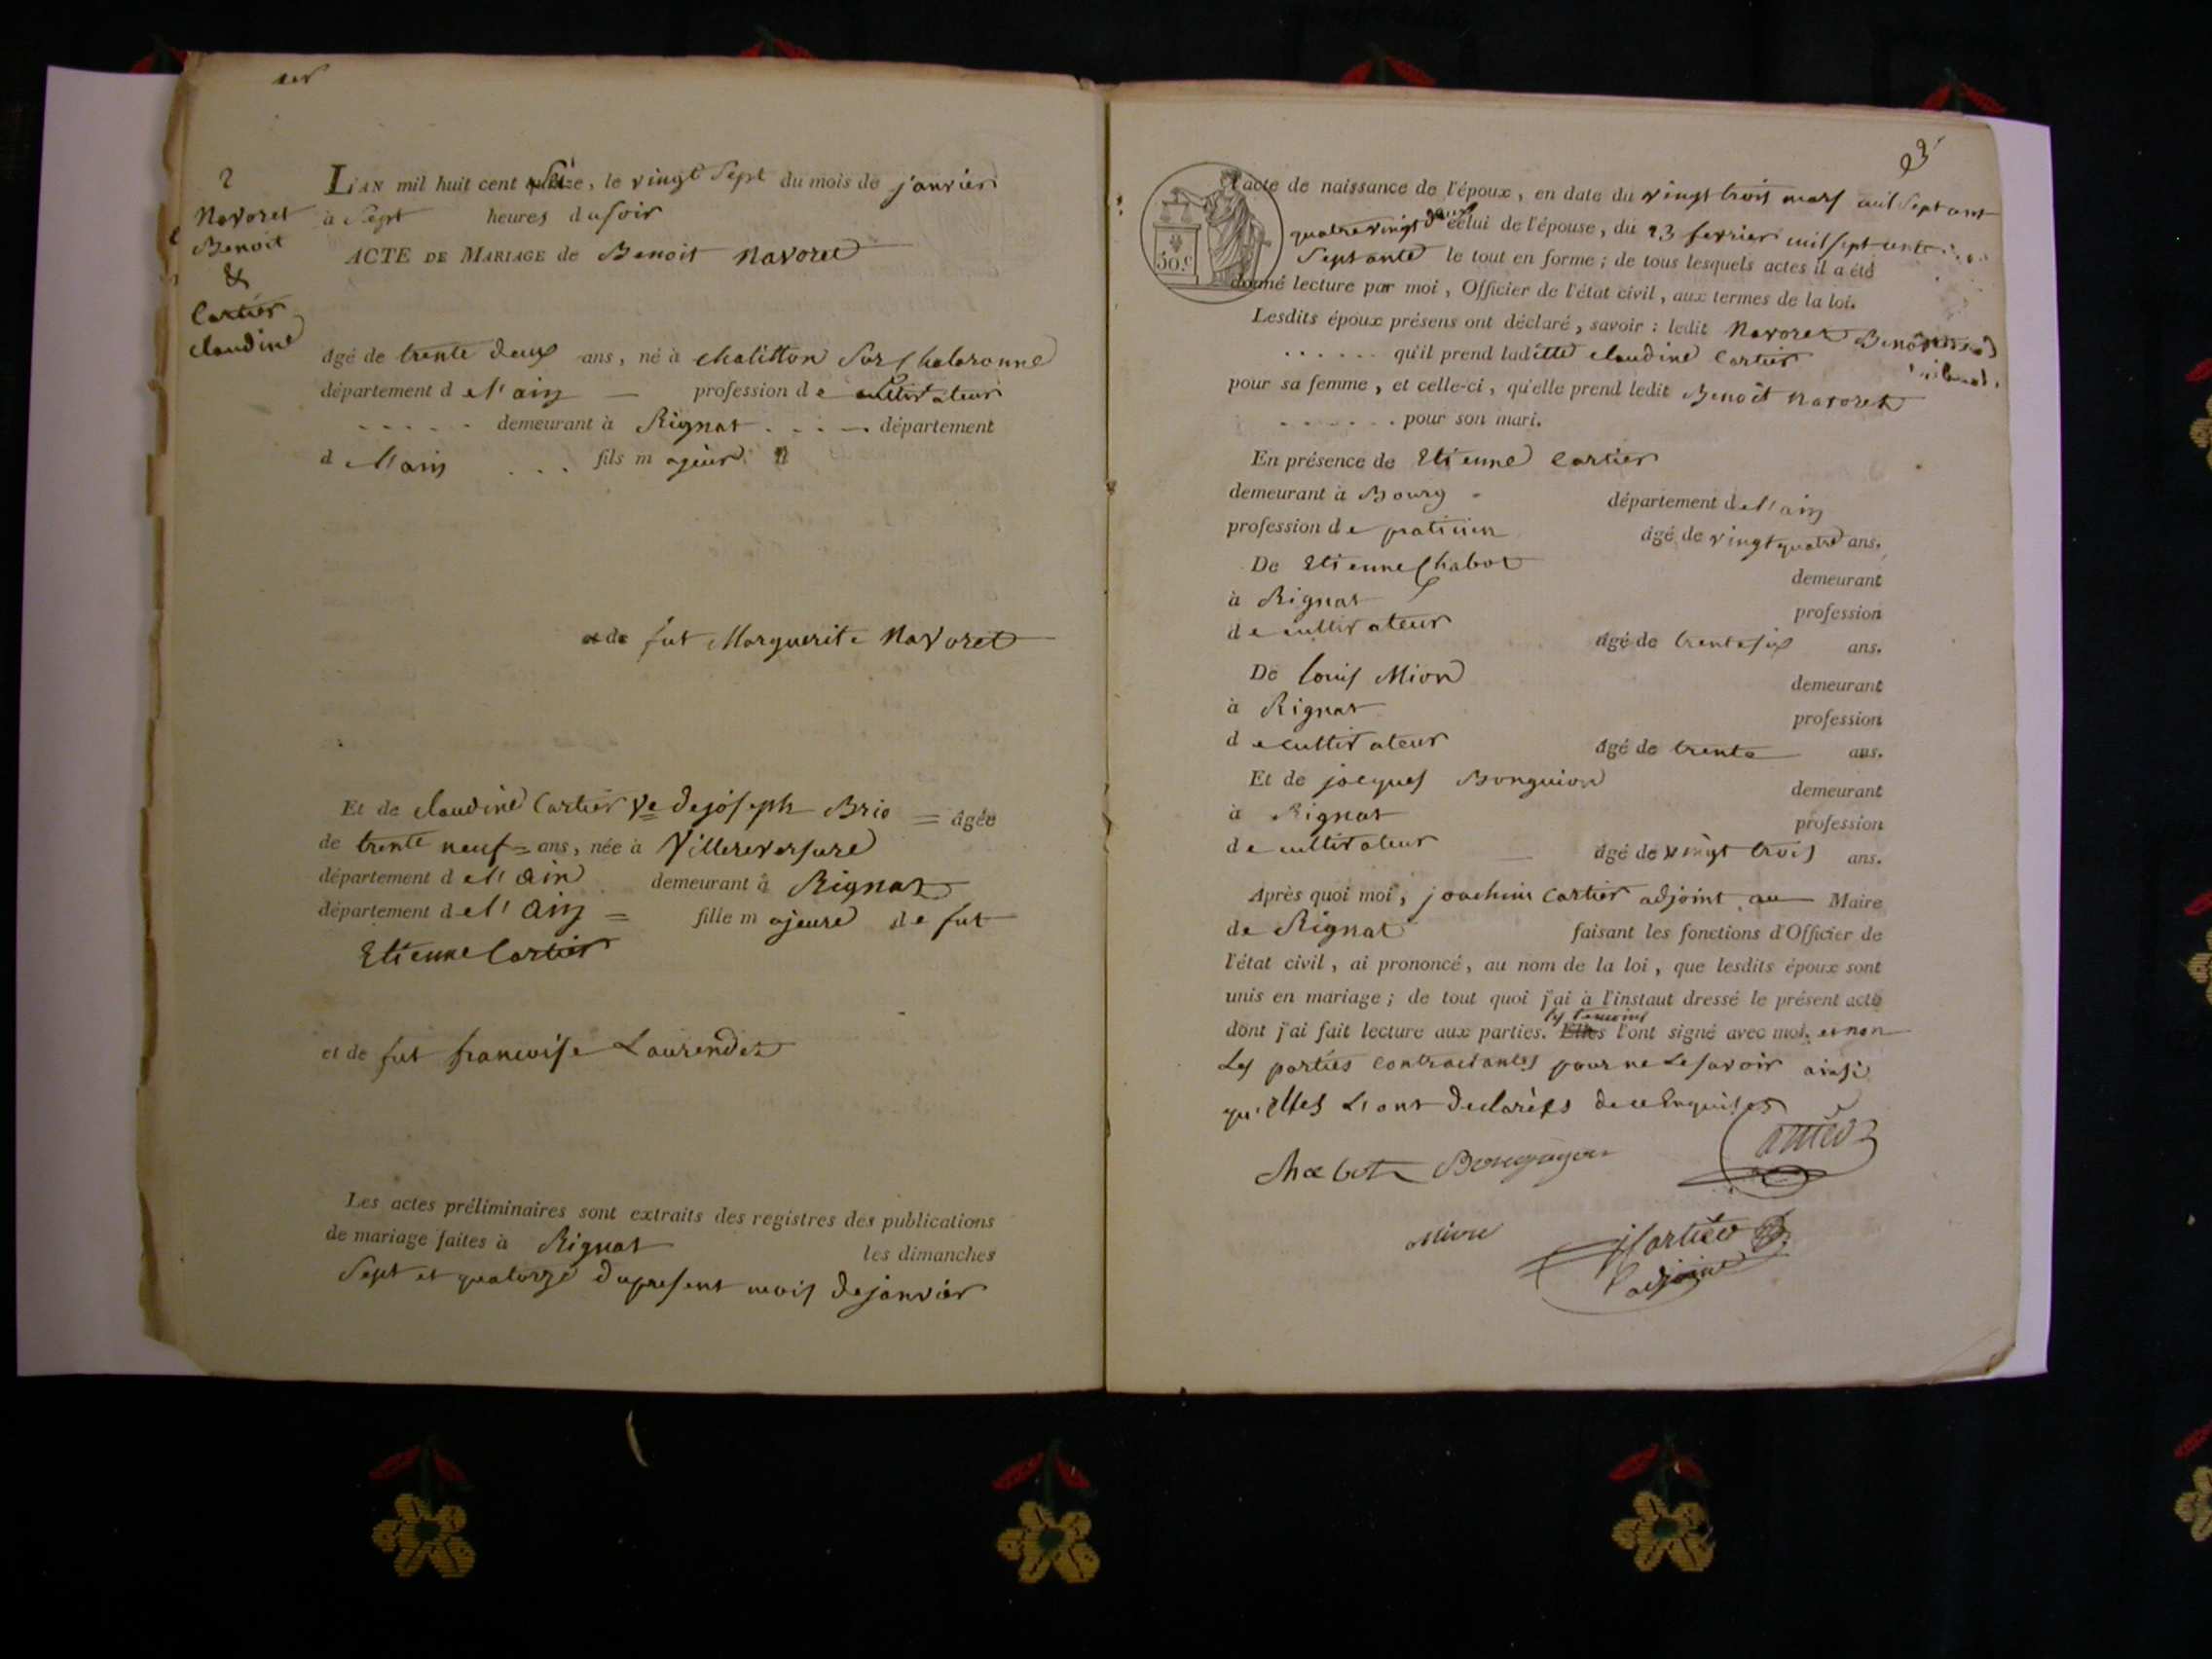 2
Navoret
Benoit
&
Cartier
claudine
L'AN mil huit cent seize, le vingt Sept du mois de janvier
à Sept heures du soir
ACTE DE MARIAGE de Benoit Navoret
âgé de trente deux ans, né à chatitton Sur Chalaronne
département de l'ain profession de cultivateur
demeurant à Rignat département
de l'ain fils majeur
et de fut Marguerite Navoret
Et de claudine Cartier Ve de joseph Brio = âgée
de trente neuf = ans, née à Villereversure
département de l'ain demeurant à Rignat
département de l'ain = fille majeure de fut
Etienne Cartier
et de fut francoise Laurendet
Les actes préliminaires sont extraits des registres des publications
de mariage faites à Rignat les dimanches
Sept et quatorze du present mois de janvier
3
50.c
l'acte de naissance de l'époux, en date du vingt trois mars mil Sept cent
quatre vingt deux celui de l'épouse, du 23 fevrier mil sept cent
Septante le tout en forme ; de tous lesquels actes il a été
donné lecture par moi, Officier de l'état civil, aux termes de la loi.
Lesdits époux présens ont déclaré, savoir : ledit Navoret Benoit
qu'il prend laditte claudine Cartier
pour sa femme, et celle-ci, qu'elle prend ledit Benoit Navoret
pour son mari.
En présence de Etienne Cartier
demeurant à Bourg département de l'ain
profession de praticien âgé de vingt quatre ans.
De Etienne Chabot demeurant
à Rignat profession
de cultivateur âgé de trente six ans.
De louis Mion demeurant
à Rignat profession
de cultivateur âgé de trente ans.
Et de jacques Bonguion demeurant
à Rignat profession
de cultivateur âgé de vingt trois ans.
Après quoi moi, joachim Cartier adjoint au Maire
de Rignat faisant les fonctions d'Officier de
l'état civil, ai prononcé, au nom de la loi, que lesdits époux sont
unis en mariage ; de tout quoi j'ai à l'instant dressé le présent acte
les temoins
dont j'ai fait lecture aux parties. Elles l'ont signé avec moi. et non
Les parties contractantes pour ne Le savoir ainsi
qu'elles L'ont declarées de ce Enquises
Chabot Bonguyon Cartier
Mion
J Cartier
adjoint